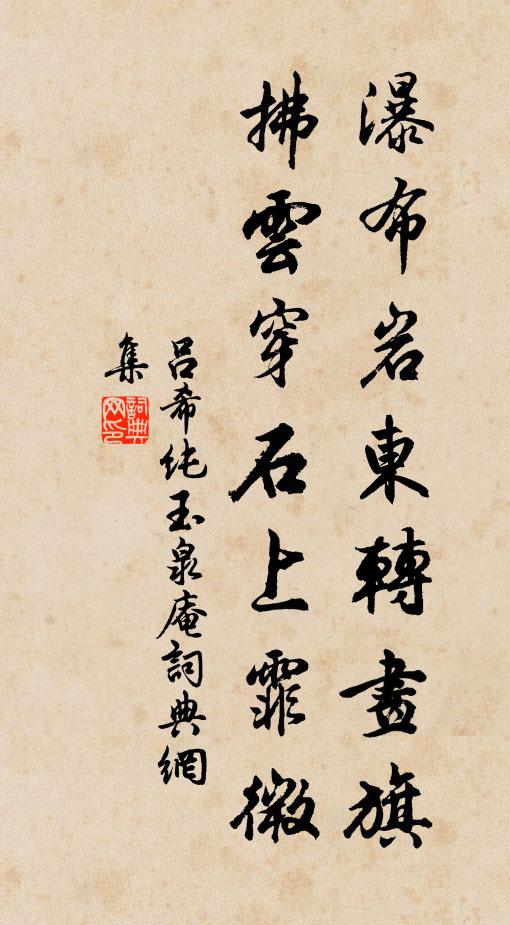 瀑布岩東轉畫旗
拂雲穿石上霏微
呂希純玉泉庵詞典網
集
詞典網印